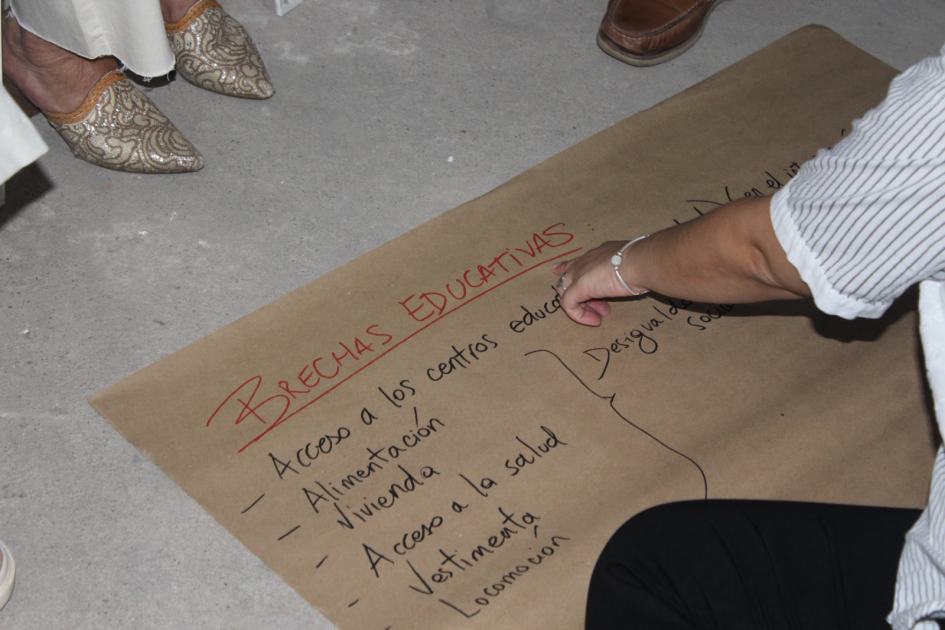 BRECHAS EDUCATIVAS
- Acceso a los centros
- Alimentación
- Vivienda
- Acceso a la salud
- Vestimenta
- Locomoción
(en el